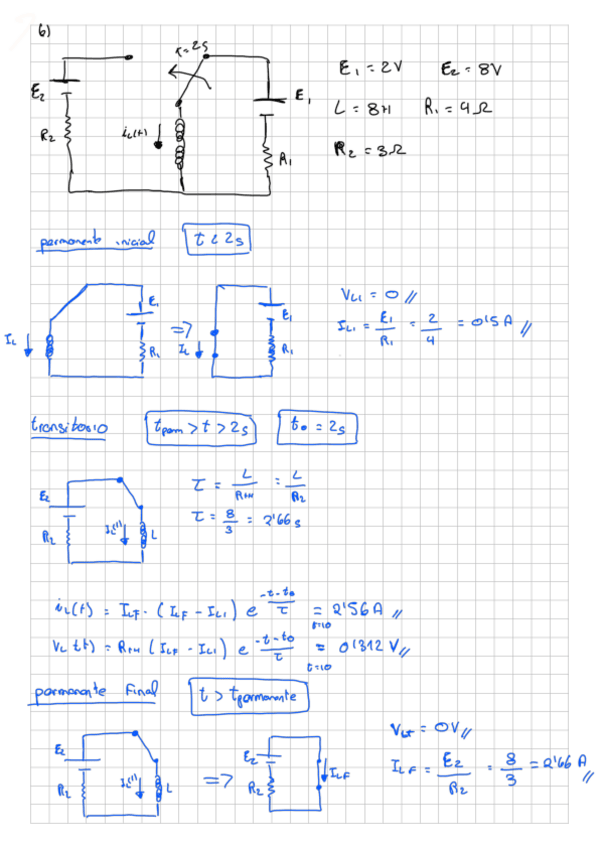 6)
t=2s
E₂
R₂
iL(t)
E₁
R₁
E₁ = 2V E₂ = 8V
L = 8H R₁ = 4Ω
R₂ = 3Ω
permanente inicial t < 2s
E₁
R₁
IL
=>
IL
E₁
R₁
VLi = 0 //
ILi = E₁/R₁ = 2/4 = 0'5A //
transitorio tperm > t > 2s t₀ = 2s
E₂
R₂
iL(t)
L
τ = L/RTH = L/R₂
τ = 8/3 = 2'66 s
iL(t) = ILF - (ILF - ILi) e^(-t-t₀/τ) = 2'56 A //
t=10
VL(t) = RTH (ILF - ILi) e^(-t-t₀/τ) = 0'312 V //
t=10
permanente Final t > tpermanente
E₂
R₂
iL(t)
L
=>
E₂
R₂
ILF
VLF = 0V //
ILF = E₂/R₂ = 8/3 = 2'66 A //